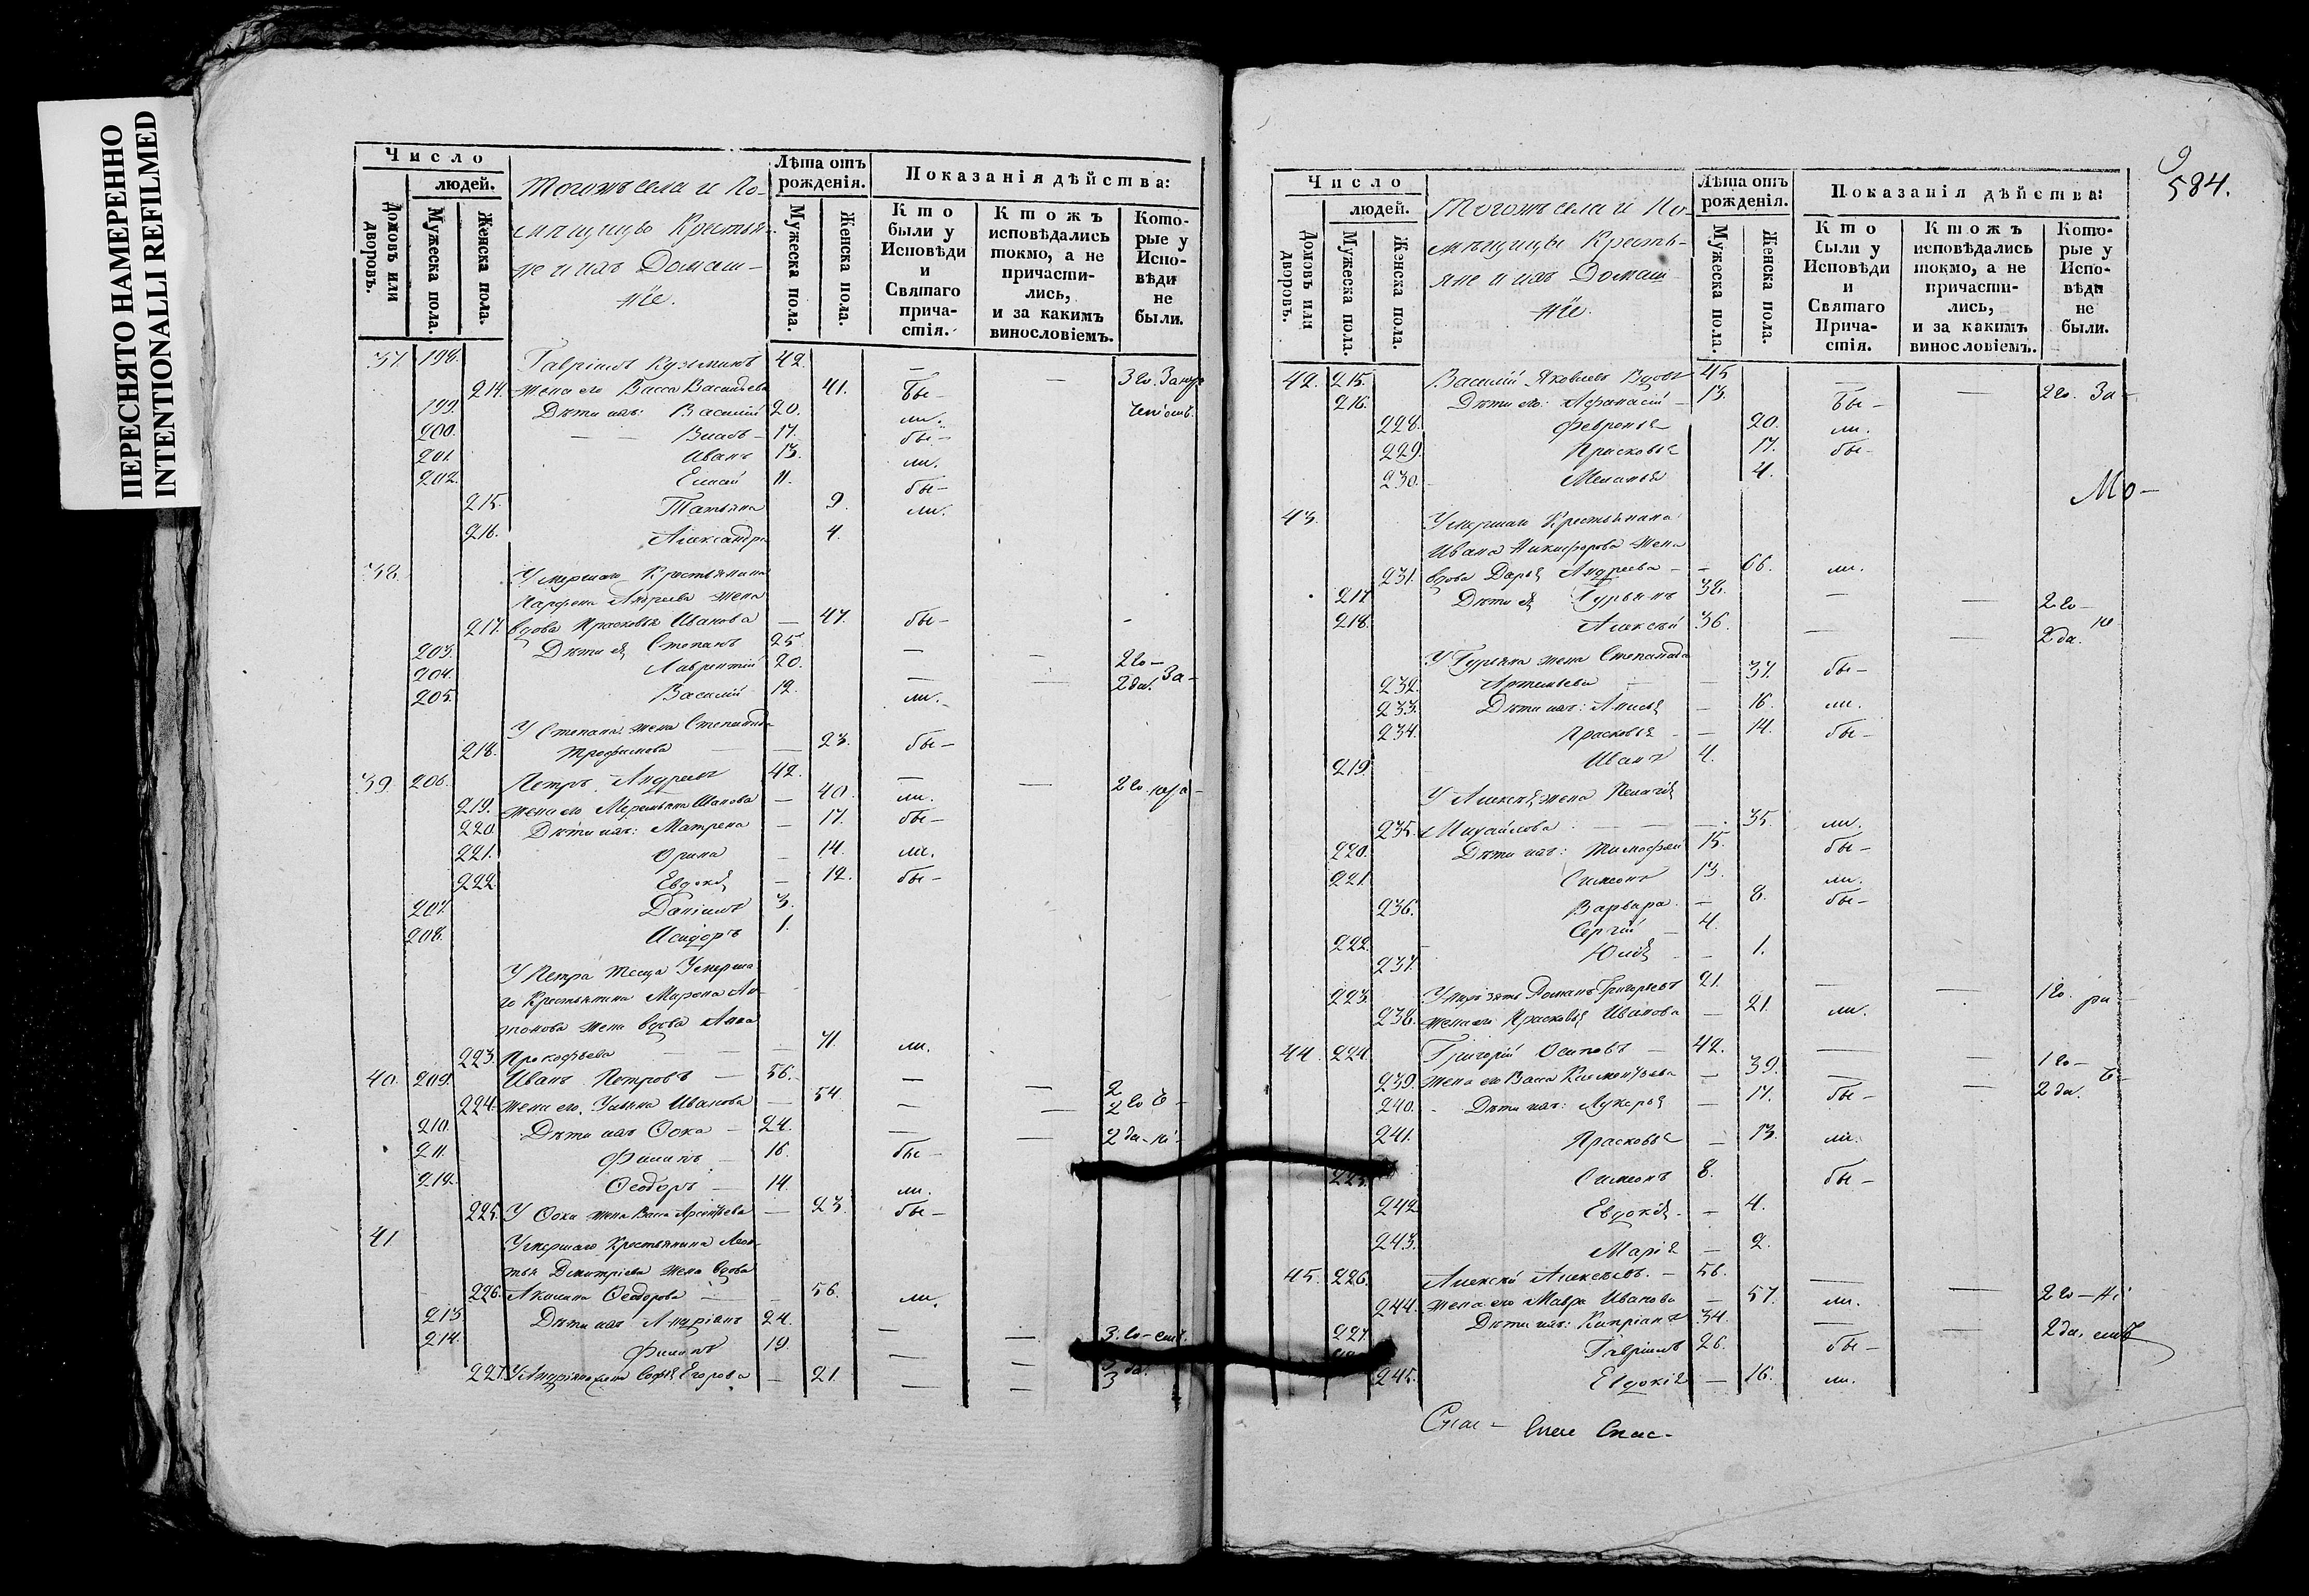 ПЕРЕСНЯТО НАМЕРЕННО
INTENTIONALLI REFILMED
Число
людей.
Домовъ или дворовъ.
Мужеска пола.
Женска пола.
Тогожъ села и По-
мѣщицы Крестья-
не и ихъ Домаш-
нїе.
Лѣта отъ рожденія.
Мужеска пола.
Женска пола.
Показанія дѣйства:
Кто были у Исповѣди и Святаго причастія.
Ктожъ исповѣдались токмо, а не причасти-лись, и за какимъ винословіемъ.
Кото-рые у Испо-вѣди не были.
37. 198. Гавріилъ Кузьминъ 42. — — 3 го. За нер
214. жена его Васса Васильева 41. бы-
199. Дѣти ихъ: Василій 20. ли.
200. — — Власъ - 17. бы-
201. Иванъ 13. ли.
202. Елисей 11. бы-
215. Татьяна 9. ли.
216. Александра 4.
38. Умершаго Крестьянина
Парфена Андреева жена
217. вдова Прасковья Иванова — 47. бы- -
203. Дѣти ея Степанъ 25. — — 2 го-
204. Лаврентій 20. — — 2 да. За-
205. Василій 12. ли.
У Степана жена Степанида
218. Трофимова — — 23. бы-
39. 206. Петръ Андреевъ 42. — — 2 го. нера-
219. жена его Мареміяна Иванова — 40. ли.
220. Дѣти ихъ: Матрена — 17. бы-
221. Орина — 14. ли.
222. Евдокея — 12. бы-
207. Даніилъ 3.
208. Исидоръ 1.
У Петра теща Умерша
го Крестьянина Мирона Ан-
дронова жена вдова Анна
223. Прокофьева — — — 71. ли.
40. 209. Иванъ Петровъ — 56. — — 2
224. жена его Ульяна Иванова — 54. — — 2 го б-
210. Дѣти ихъ Фока — 24. — — 2 да-
211. Филипъ - 16. бы-
212. Ѳеодоръ — 14. ли.
225. У Фоки жена Васса Арсентьева — 23. бы-
41. Умершаго Крестьянина Леон-
тья Дмитріева жена вдова
226. Акилина Ѳедорова — — 56. ли.
213. Дѣти ихъ Андріанъ 24. — — 3 го-
214. Филипъ 19. — — 3 да.
227. У Андріана жена Софья Егорова — 21. — — 3
584.
Число
людей.
Домовъ или дворовъ.
Мужеска пола.
Женска пола.
Тогожъ села и По-
мѣщицы Кресть-
яне и ихъ Домаш
нїе.
Лѣта отъ рожденія.
Мужеска пола.
Женска пола.
Показанія дѣйства:
Кто были у Исповѣди и Святаго Прича-стія.
Ктожъ исповѣдались токмо, а не причасти-лись, и за какимъ винословіемъ.
Кото-рые у Испо-вѣди не были.
42. 215. Василій Яковлевъ Вдовъ 45. — — 2 го. За-
216. Дѣти его: Афанасій - 13. бы-
228. Февронья 20. ли.
229. Прасковья 17. бы-
230. Меланья 4.
Мо-
43. Умершаго Крестьянина
Ивана Никифорова жена
231. вдова Дарья Андреева - - 66. ли.
217. Дѣти ея Гурьянъ 38. — — 2 го-
218. Алексѣй 36. — — 2 да.
У Гурьяна жена Степанида
232. Артемьева — — 37. бы-
233. Дѣти ихъ: Анисья — 16. ли.
234. Прасковья - — 14. бы-
219. Иванъ 4.
У Алексѣя жена Пелагея
235. Михайлова — — — 35. ли.
220. Дѣти ихъ: Тимофей 15. бы-
221. Симеонъ 13. ли.
236. Варвара - 8. бы-
222. Сергій — 4.
237. Юлія - 1.
223. зять Романъ Григорьевъ 21. — — 1 го. ра-
238. жена его Прасковья Иванова — 21. ли.
44. 224. Григорій Осиповъ — 42. — — 1 го-
239. жена его Васса Климентьева — 39. — — 2 да. б-
240. Дѣти ихъ: Лукерья — 17. бы-
241. Прасковья — 13. ли.
225. Симеонъ 8. бы-
242. Евдокія - - 4.
243. Марія — 2.
45. 226. Алексѣй Алексѣевъ. — 56. — — 2 го-
244. жена его Мавра Иванова — 57. ли.
227. Дѣти ихъ: Кипріанъ 34. — — 2 да.
Гавріилъ 26. бы-
245. Евдокія — 16. ли.
Спас- Спас Спас-